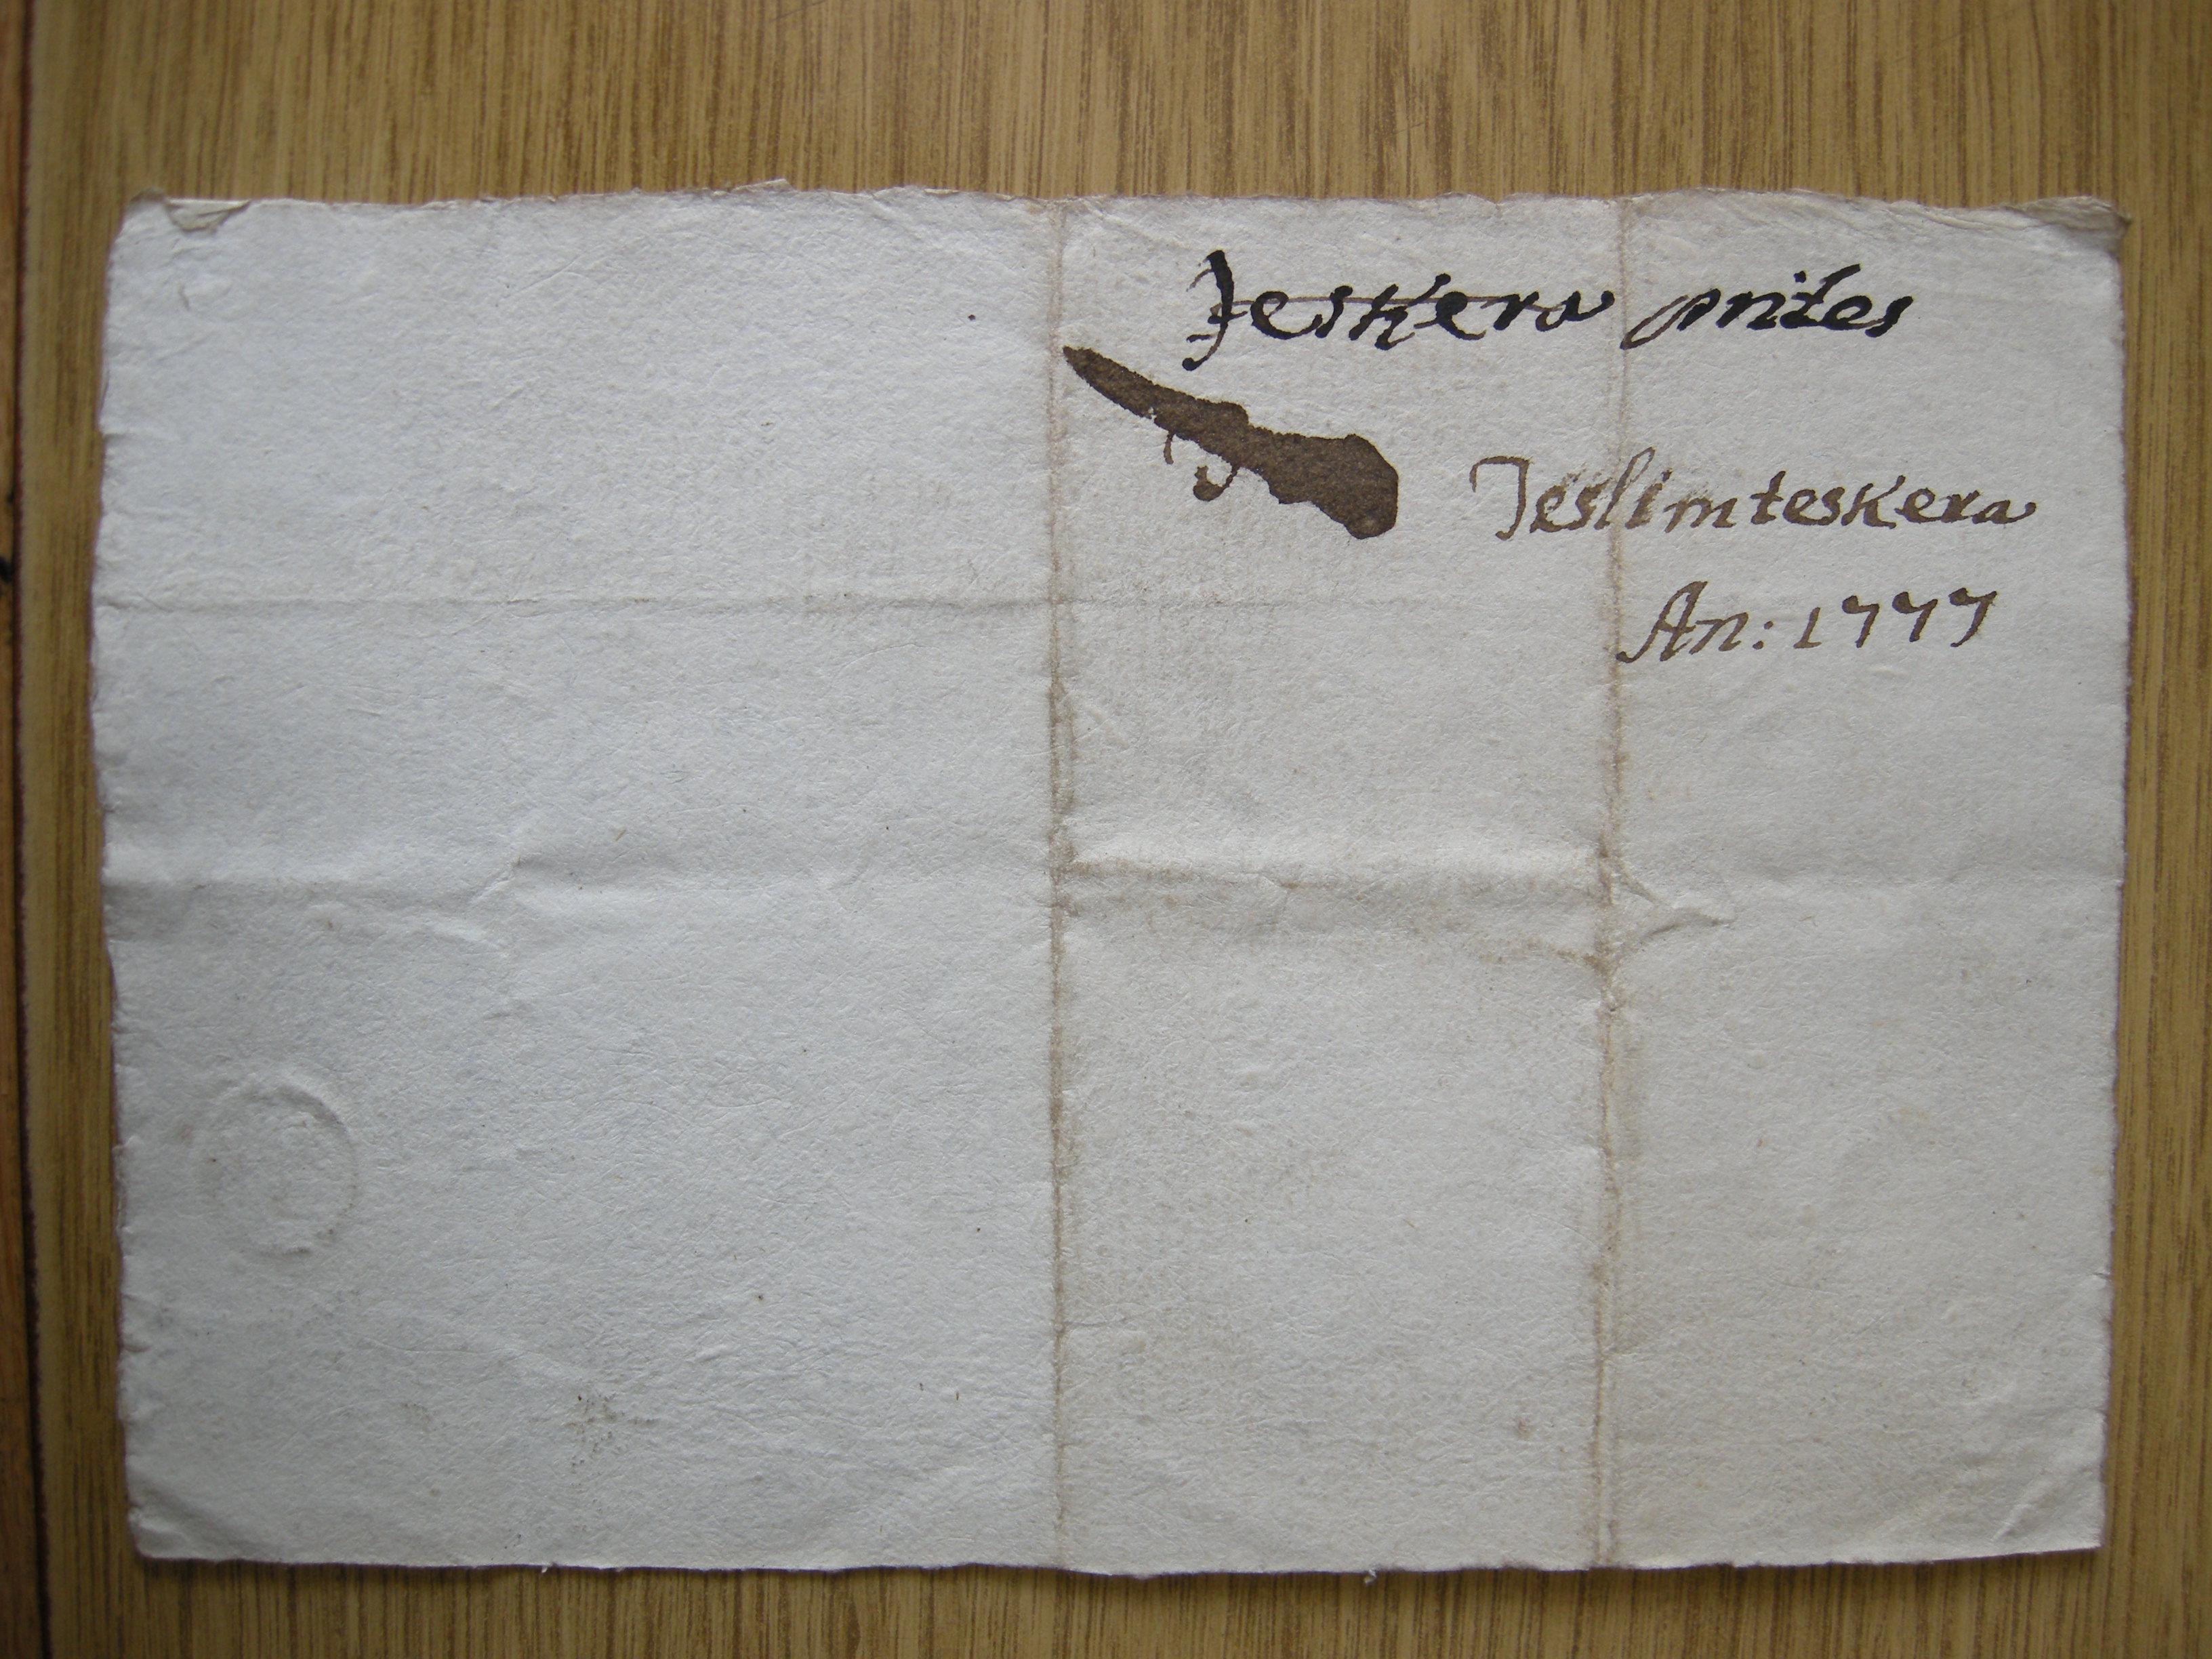 Teskera prites
Teslimteskera
An: 1777